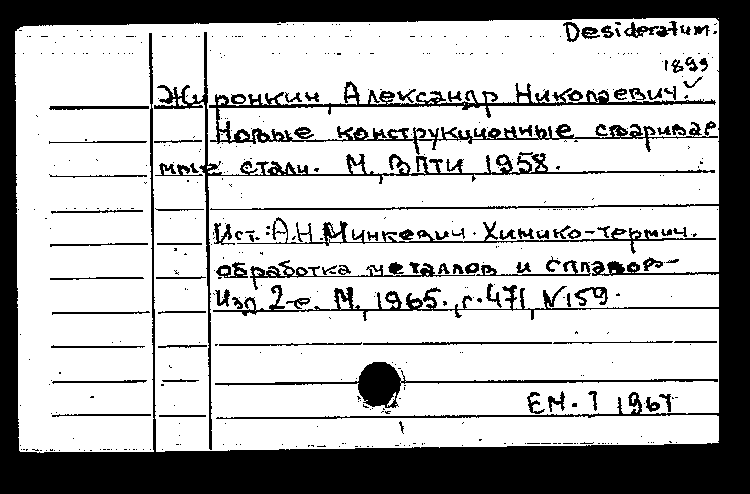 Desideratum.
1899
Жиронкин, Александр Николаевич.
Новые конструкционные сваривае
мые стали. М., ВПТИ, 1958.
Ист.: А.Н. Минкевич. Химико-термич.
обработка металлов и сплавов.-
Изд. 2-е. М., 1965., с. 471, N 159.
ЕМ. I 1967